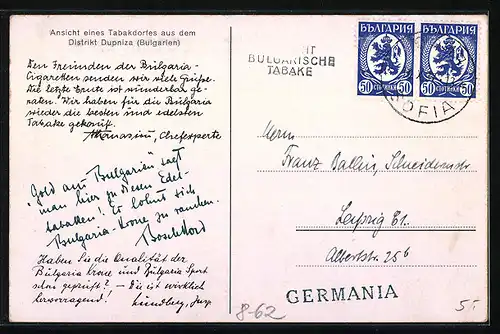 Ansicht eines Tabakdorfes aus dem
Distrikt Dupniza (Bulgarien)
Den Freunden der Bulgaria-
Cigaretten senden wir viele Grüße.
Die letzte Ernte ist wunderbar ge-
raten. Wir haben für die Bulgaria
wieder die besten und edelsten
Tabake gekauft.
Chefexperte
"Gold aus Bulgarien" sagt
man hier zu diesen Edel-
tabaken! Es lohnt sich
Bulgaria-Krone zu rauchen.
Haben Sie die Qualität der
Bulgaria Krone und Bulgaria Sport
schon geprüft? – Die ist wirklich
hervorragend!
BULGARISCHE
TABAKE
БЪЛГАРИЯ
50 СТОТИНКИ 50
БЪЛГАРИЯ
50 СТОТИНКИ 50
SOFIA
Herrn
Franz Schneidermstr
Leipzig C1.
Albertstr. 25b
GERMANIA
8-62
5.-